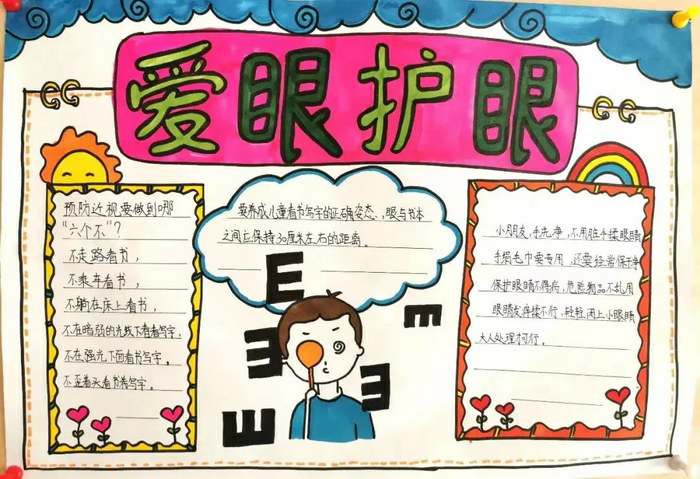 爱眼护眼
预防近视要做到哪
“六个不”？
不走路看书，
不乘车看书，
不躺在床上看书，
不在暗弱的光线下看书写字，
不在强光下面看书写字，
不歪着头看书写字。
要养成儿童看书写字的正确姿态.，眼与书本
之间应保持30厘米左右的距离。
E
E
E
E
E
小朋友，手洗净，不用脏手揉眼睛
手绢毛巾要专用，还要经常保干净
保护眼睛不得病，危险物品不乱用
眼睛发痒揉不行，轻轻闭上小眼睛
大人处理才行。